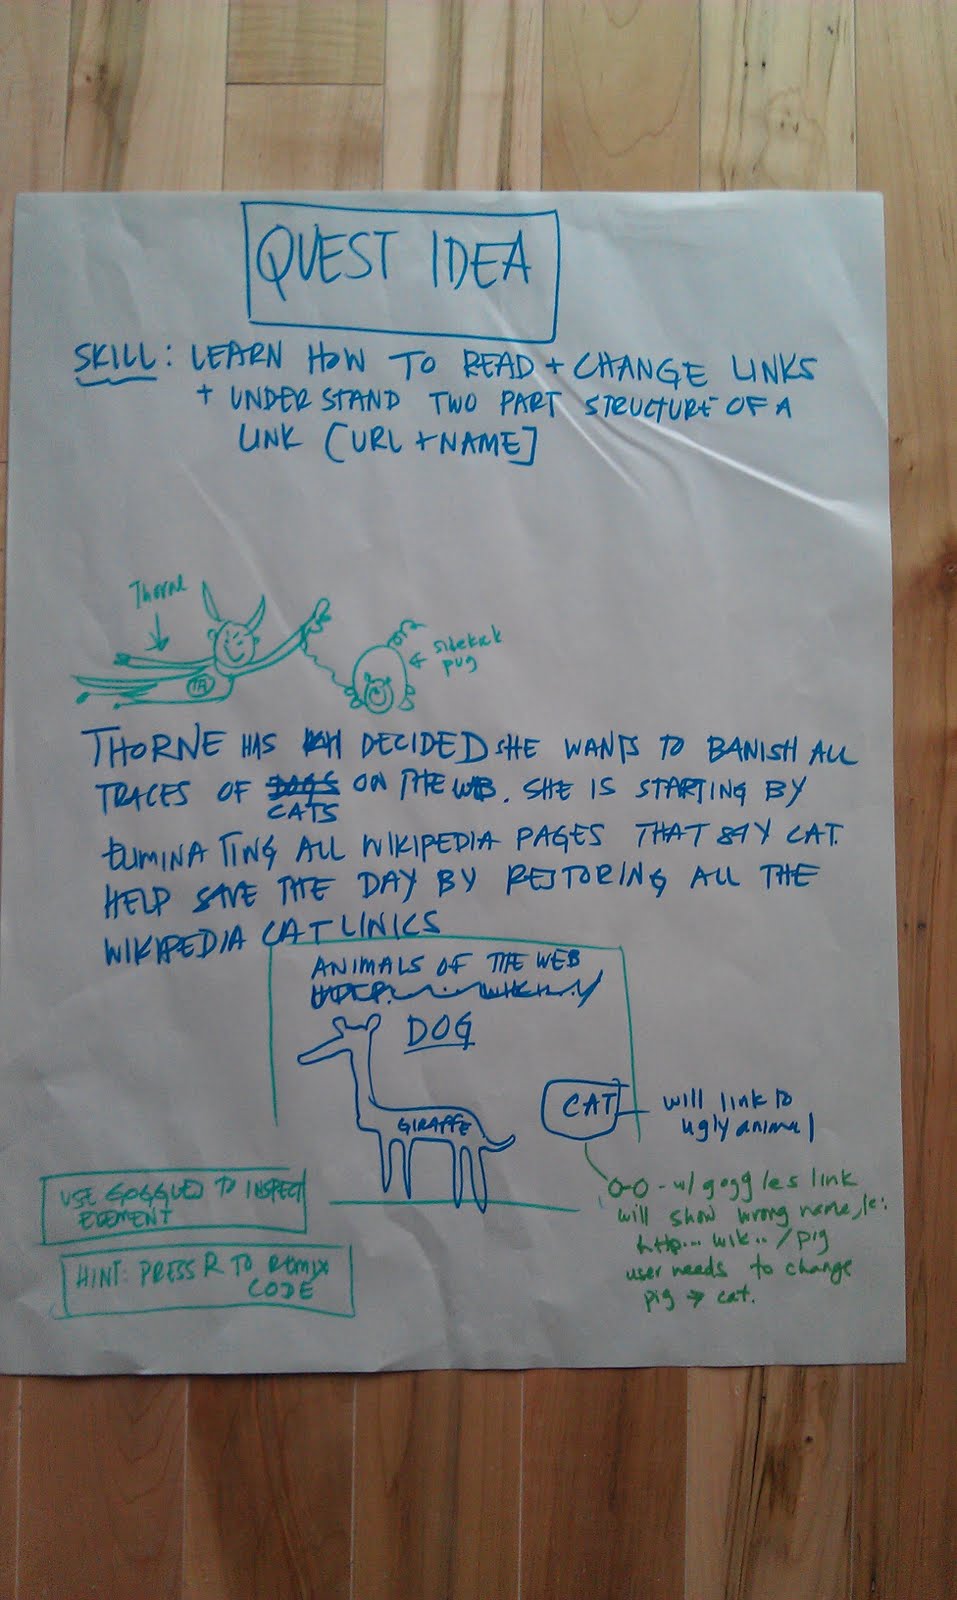 QUEST IDEA
SKILL: LEARN HOW TO READ + CHANGE LINKS
+ UNDERSTAND TWO PART STRUCTURE OF A
LINK [URL + NAME]
Thorne
sidekick
pug
TH
THORNE HAS DECIDED SHE WANTS TO BANISH ALL
TRACES OF DOGS ON THE WEB. SHE IS STARTING BY
CATS
ELIMINATING ALL WIKIPEDIA PAGES THAT SAY CAT.
HELP SAVE THE DAY BY RESTORING ALL THE
WIKIPEDIA CAT LINKS
ANIMALS OF THE WEB
DOG
GIRAFFE
CAT
will link to
ugly animal
USE GOGGLES TO INSPECT
ELEMENT
HINT: PRESS R TO REMIX
CODE
O-O - w/ goggles link
will show wrong name, ie:
http... wik.. /pig
user needs to change
pig → cat.